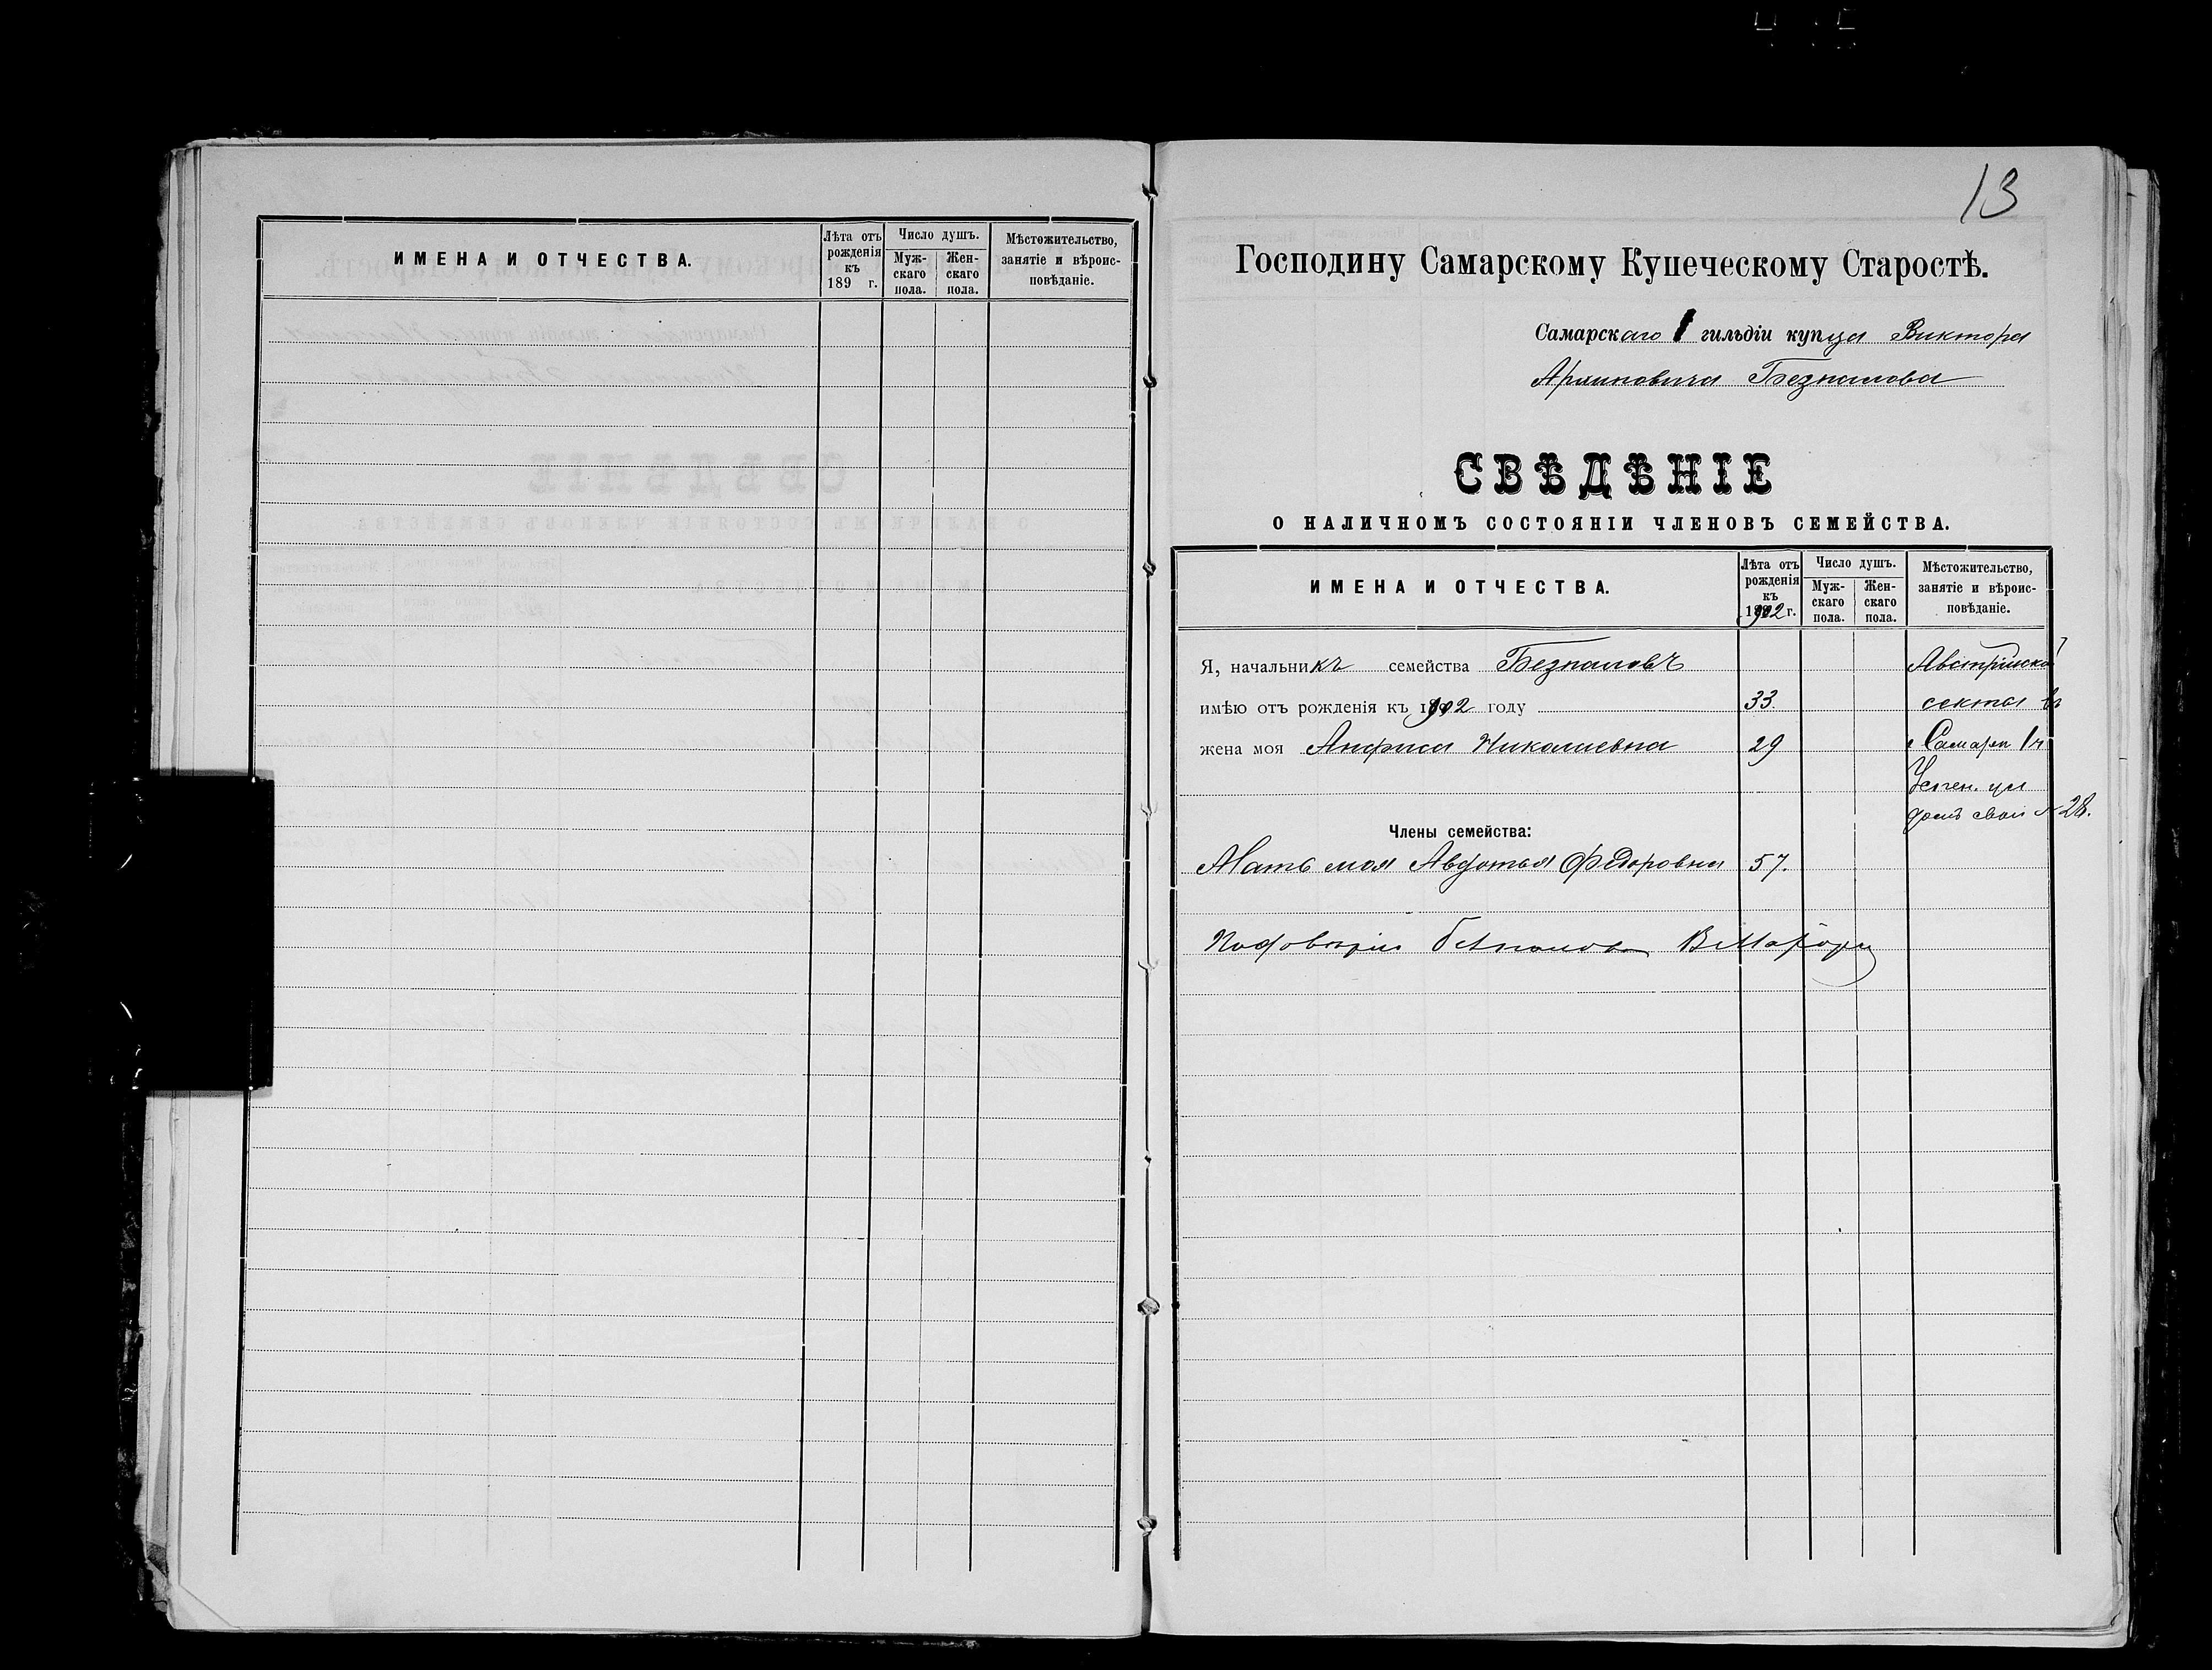 ИМЕНА И ОТЧЕСТВА.
Лѣта отъ рожденія къ 189 г.
Число душъ.
Муж-скаго пола.
Жен-скаго пола.
Мѣстожительство, занятіе и вѣроис-повѣданіе.
13
Господину Самарскому Купеческому Старостѣ.
Самарскаго 1 гильдіи купца Виктора
Архиповича Безпалова
СВѢДѢНІЕ
О НАЛИЧНОМЪ СОСТОЯНІИ ЧЛЕНОВЪ СЕМЕЙСТВА.
ИМЕНА И ОТЧЕСТВА.
Лѣта отъ рожденія къ 1902 г.
Число душъ.
Муж-скаго пола.
Жен-скаго пола.
Мѣстожительство, занятіе и вѣроис-повѣданіе.
Я, начальникъ семейства Безпаловъ Австрійской
имѣю отъ рожденія къ 1902 году 33 секты въ
жена моя Анфиса Николаевна 29 Самарѣ 1 ч
Успен. ул
домъ свой № 28.
Члены семейства:
Мать моя Авдотья Федоровна 57.